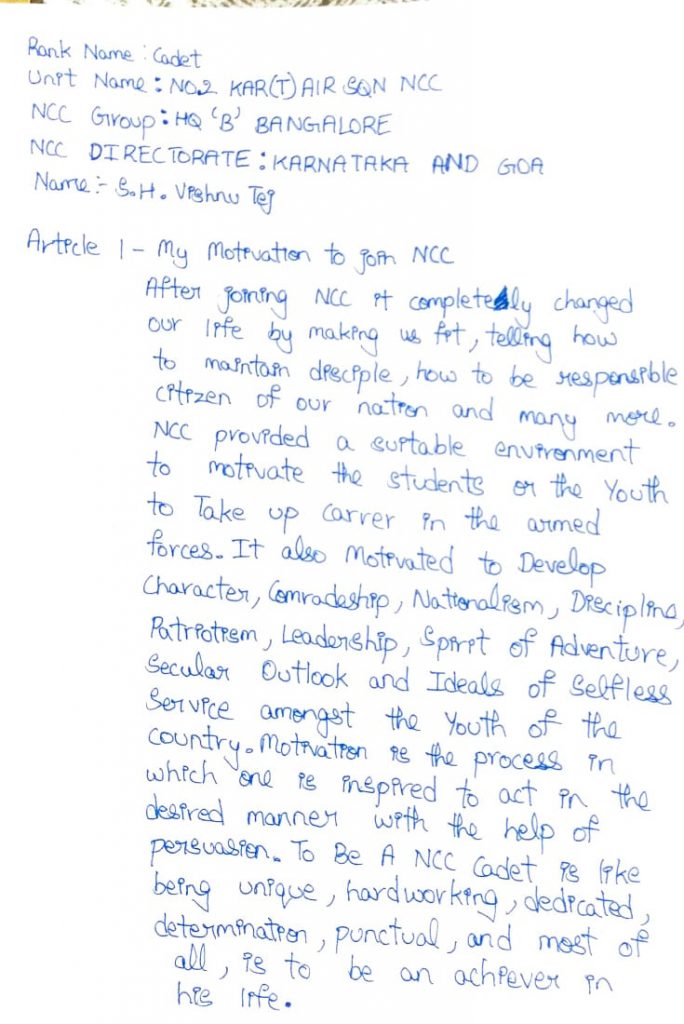 Rank Name : Cadet
Unit Name : NO.2 KAR(T) AIR SQN NCC
NCC Group : HQ 'B' BANGALORE
NCC DIRECTORATE : KARNATAKA AND GOA
Name :- S.H. Vishnu Tej
Article 1 - My Motivation to join NCC
After joining NCC it completely changed
our life by making us fit, telling how
to maintain disciple, how to be responsible
citizen of our nation and many more.
NCC provided a suitable environment
to motivate the students or the Youth
to Take up carrer in the armed
forces. It also Motivated to Develop
Character, Comradeship, Nationalism, Discipline,
Patriotism, Leadership, Spirit of Adventure,
Secular Outlook and Ideals of Selfless
Service amongst the Youth of the
country. Motivation is the process in
which one is inspired to act in the
desired manner with the help of
persuasion. To Be A NCC Cadet is like
being unique, hardworking, dedicated,
determination, punctual, and most of
all, is to be an achiever in
his life.